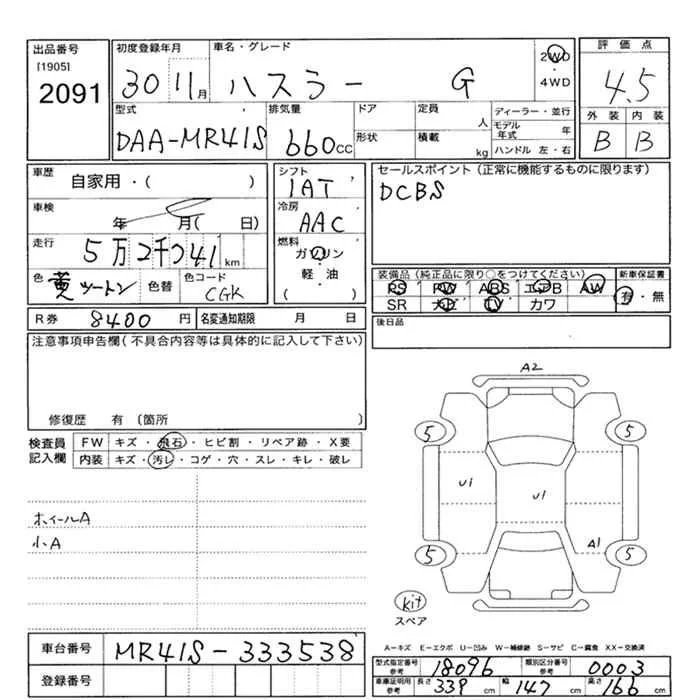 出品番号
[1905]
2091
初度登録年月
30 11月
車名・グレード
ハスラー G
2WD
・
4WD
評価点
4.5
外装 内装
B B
型式
DAA-MR41S
排気量
660cc
ドア
形状
定員
人
積載
kg
ディーラー・並行
モデル年式 年
ハンドル 左・右
車歴
自家用・( )
車検
年 月( 日)
走行
5万2千241km
色
黄ツートン
色替
色コード
CGK
シフト
IAT
冷房
AAC
燃料
ガソリン
・
軽油
( )
セールスポイント(正常に機能するものに限ります)
DCBS
装備品(純正品に限り○をつけてください)
PS PW ABS エアB AW
SR ナビ TV カワ
新車保証書
有・無
後日品
R券 8400円
名変通知期限 月 日
注意事項申告欄(不具合内容等は具体的に記入して下さい)
修復歴 有 〔箇所 〕
検査員
記入欄
FW キズ・飛石・ヒビ割・リペア跡・X要
内装 キズ・汚レ・コゲ・穴・スレ・キレ・破レ
ホイールA
小A
A2
5
5
U1
U1
A1
5
5
kit
スペア
車台番号
MR41S-333538
登録番号
A-キズ E-エクボ U-凹み W-補修跡 S-サビ C-腐食 XX-交換済
型式指定番号
参考
18096
類別区分番号
参考
0003
車庫証明用
参考
長さ 339 cm
幅 147 cm
高さ 166 cm